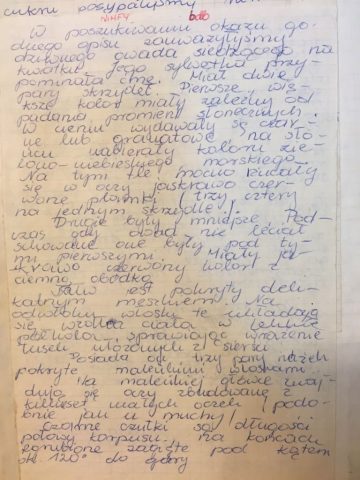 cukru posypaliśmy
NIMFY
W poszukiwaniu okazu go-
dnego opisu zauważyliśmy
dziwnego owada siedzącego na
kwiatku. Jego sylwetka przy-
pominała ćmę. Miał dwie
pary skrzydeł. Pierwsze, wię-
ksze kolor miały zależny od
padania promieni słonecznych.
W cieniu wydawały się czar-
ne lub granatowe, na sło-
ńcu nabierały koloru zie-
lono-niebieskiego morskiego.
Na tym tle mocno rzucały
się w oczy jaskrawo czer-
wone plamki (trzy, cztery
na jednym skrzydle).
Drugie były mniejsze. Pod-
czas gdy ćma nie leciał
schowane one były pod ty-
mi pierwszymi. Miały ja-
skrawo czerwony kolor z
ciemną obódką.
Tułw jest pokryty deli-
katnym meszkiem. Na
odwłoku włoski te układają
się wzdłuż ciała w
sprawiając wrażenie
łusek ułożonych z sierści.
Posiada on trzy pary nóżek
pokryte maleńkimi włoskami.
Na maleńkiej główce znaj-
dują się oczy zbudowane z
kilkuset małych oczek (podo-
bnie jak u muchy).
Czarne czułki są długości
połowy korpusu. Na końcach
zagięte pod kątem
ok 120° do góry